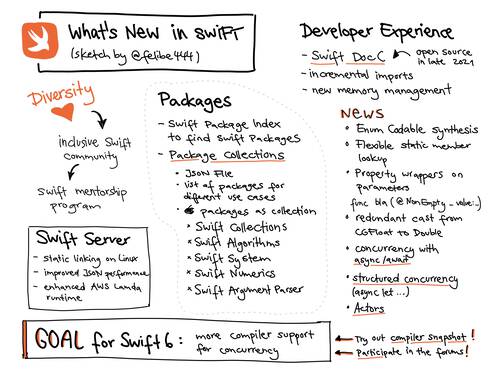 What's New in Swift
(sketch by @felibe444)
Diversity
inclusive Swift
community
Swift mentorship
program
Swift Server
- static linking on Linux
- improved JSON performance
- enhanced AWS Lamda
runtime
Packages
- Swift Package Index
to find Swift Packages
- Package Collections
JSON File
list of packages for
different use cases
packages as collection
Swift Collections
Swift Algorithms
Swift System
Swift Numerics
Swift Argument Parser
Developer Experience
- Swift DocC
open source
in late 2021
- incremental imports
- new memory management
NEWS
Enum Codable synthesis
Flexible static member
lookup
Property wrappers on
parameters
func bla (@NonEmpty _ value:..)
redundant cast from
CGFloat to Double
concurrency with
async/await
structured concurrency
(async let ...)
Actors
GOAL for Swift 6: more compiler support
for concurrency
Try out compiler snapshot!
Participate in the forums!